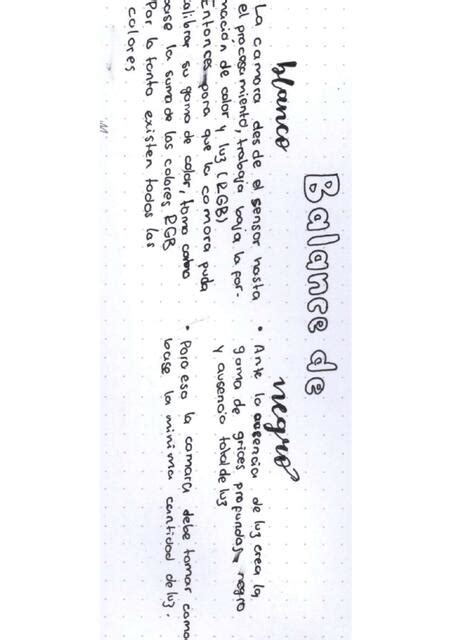 Balance de
blanco
La camara desde el sensor hasta
el procesamiento, trabaja baja la por-
mación de color y luz (RGB)
Entonces para que la camara puda
calibrar su gama de color, toma como
base la suma de los colores RGB
Por lo tanto existen todos los
colores
negro
• Ante la ausencia de luz crea la
gama de grices profundas negro
y ausencia total de luz
• Para eso la camara debe tomar como
base la minima cantidad de luz.